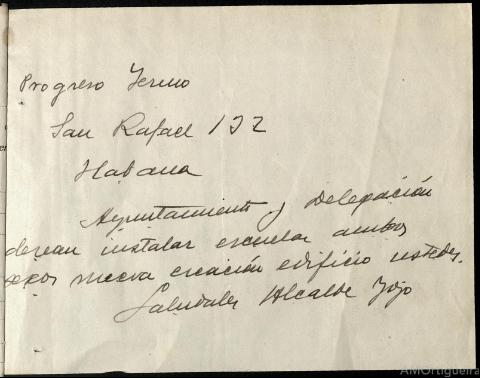 Progreso
San Rafael 122
Habana
Ayuntamiento y Delegación
desean instalar escuelas ambos
sexos nueva creación edificio ustedes.
Saludales Alcalde
AMOrtigueira